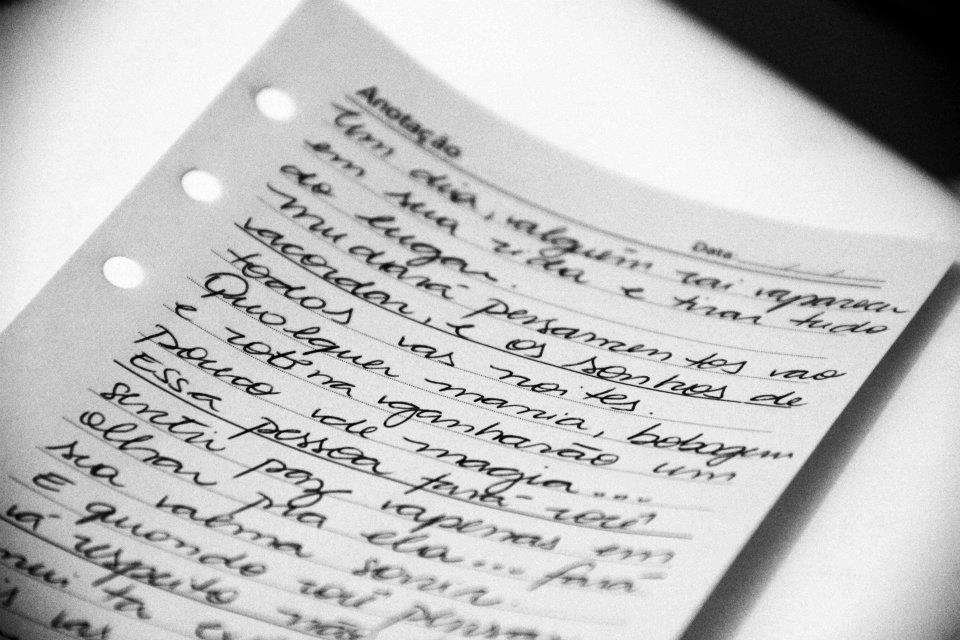 Anotação
Data
Um dia, alguém vai aparecer
em sua vida e tirar tudo
do lugar.
mudará pensamentos ao
acordar, e os sonhos de
todas as noites.
Qualquer mania, bobagem
e rotina ganharão um
pouco de magia...
Essa pessoa fará você
sentir paz apenas em
olhar pra ela... fará
sua alma sorrir.
E quando você
respeito não